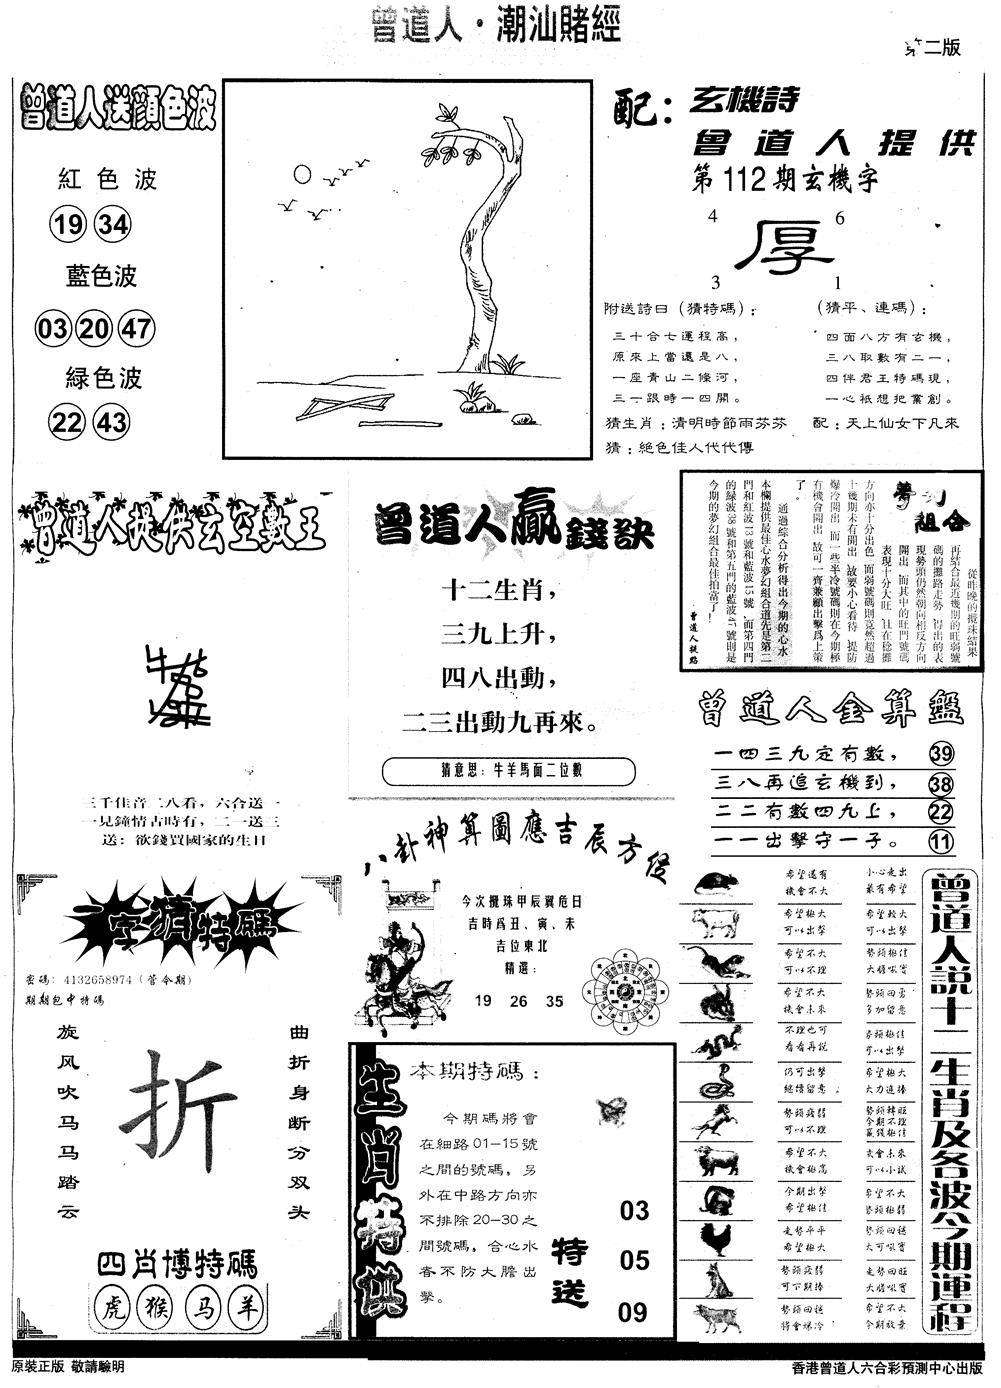 曾道人·潮汕賭經
第二版
曾道人送顔色波
紅色波
19 34
藍色波
03 20 47
緑色波
22 43
配：
玄機詩
曾道人提供
第112期玄機字
4 6
厚
3 1
附送詩曰（猜特碼）：
三十合七運程高，
原來上當還是八，
一座青山二條河，
三一跟時一四開。
猜生肖：清明時節雨芬芬
猜：絕色佳人代代傳
（猜平、連碼）：
四面八方有玄機，
三八取數有二一，
四伴君王特碼現，
一心祇想把業創。
配：天上仙女下凡來
曾道人提供玄空數王
三千佳音二八看，六合送一
一見鐘情古時有，二一送三
送：欲錢買國家的生日
曾道人贏錢訣
十二生肖，
三九上升，
四八出動，
二三出動九再來。
猜意思：牛羊馬面二位數
夢幻組合
從昨晚的攪珠結果
再結合最近幾期的旺弱號
碼的攤路走勢，得出的表
現勢頭仍然朝向相反方向
開出，而其中的旺門號碼
表現十分大旺，且在稳攤
方向亦十分出色，而弱號碼則竟然超過
十幾期未有開出，故要小心看待，提防
爆冷開出，而一些半冷號碼則在今期極
有機會開出，故可一齊兼顧出擊爲上策
了。
通過綜合分析得出今期的心水
本欄提供最佳心水夢幻組合道先是第二
門和紅波13號和藍波15號，而第四門
的緑波38號和第五門的藍波47號則是
今期的夢幻組合最佳拍當了！
曾道人提路
曾道人金算盤
一四三九定有數， 39
三八再追玄機到， 38
二二有數四九上， 22
一一出擊守一子。 11
一字猜特碼
密碼：4132658974（管令期）
期期包中特碼
旋风吹马马踏云
折
曲折身断分双头
四肖博特碼
虎 猴 马 羊
八卦神算圖應吉辰方位
今次攪珠甲辰翼危日
吉時爲丑、寅、未
吉位東北
精選：
19 26 35
生肖特供
本期特碼：
今期碼將會
在細路01-15號
之間的號碼，另
外在中路方向亦
不排除20-30之
間號碼，合心水
者不防大膽出
擊。
特送
03
05
09
曾道人説十二生肖及各波今期運程
希望還有
機會不大
小心走出
最有希望
希望極大
可以出擊
希望較大
可以出擊
希望不大
可以不理
勢頭極佳
大膽吸實
希望不大
機會未來
勢頭回勇
多加留意
不理也可
看看再説
勢頭極佳
可以出擊
仍可出擊
繼續留意
希望極大
大力追捧
勢頭疲弱
可以不理
勢頭轉旺
今期不理
贏錢極佳
希望不大
機會極高
機會未來
可以小試
今期出擊
希望極佳
希望不大
勢頭極弱
走勢平平
希望極大
勢頭回穩
大可吸實
勢頭疲弱
可下期捧
走勢回旺
大膽吸實
勢頭回穩
將會爆冷
希望不大
今期放棄
原裝正版 敬請驗明
香港曾道人六合彩預測中心出版